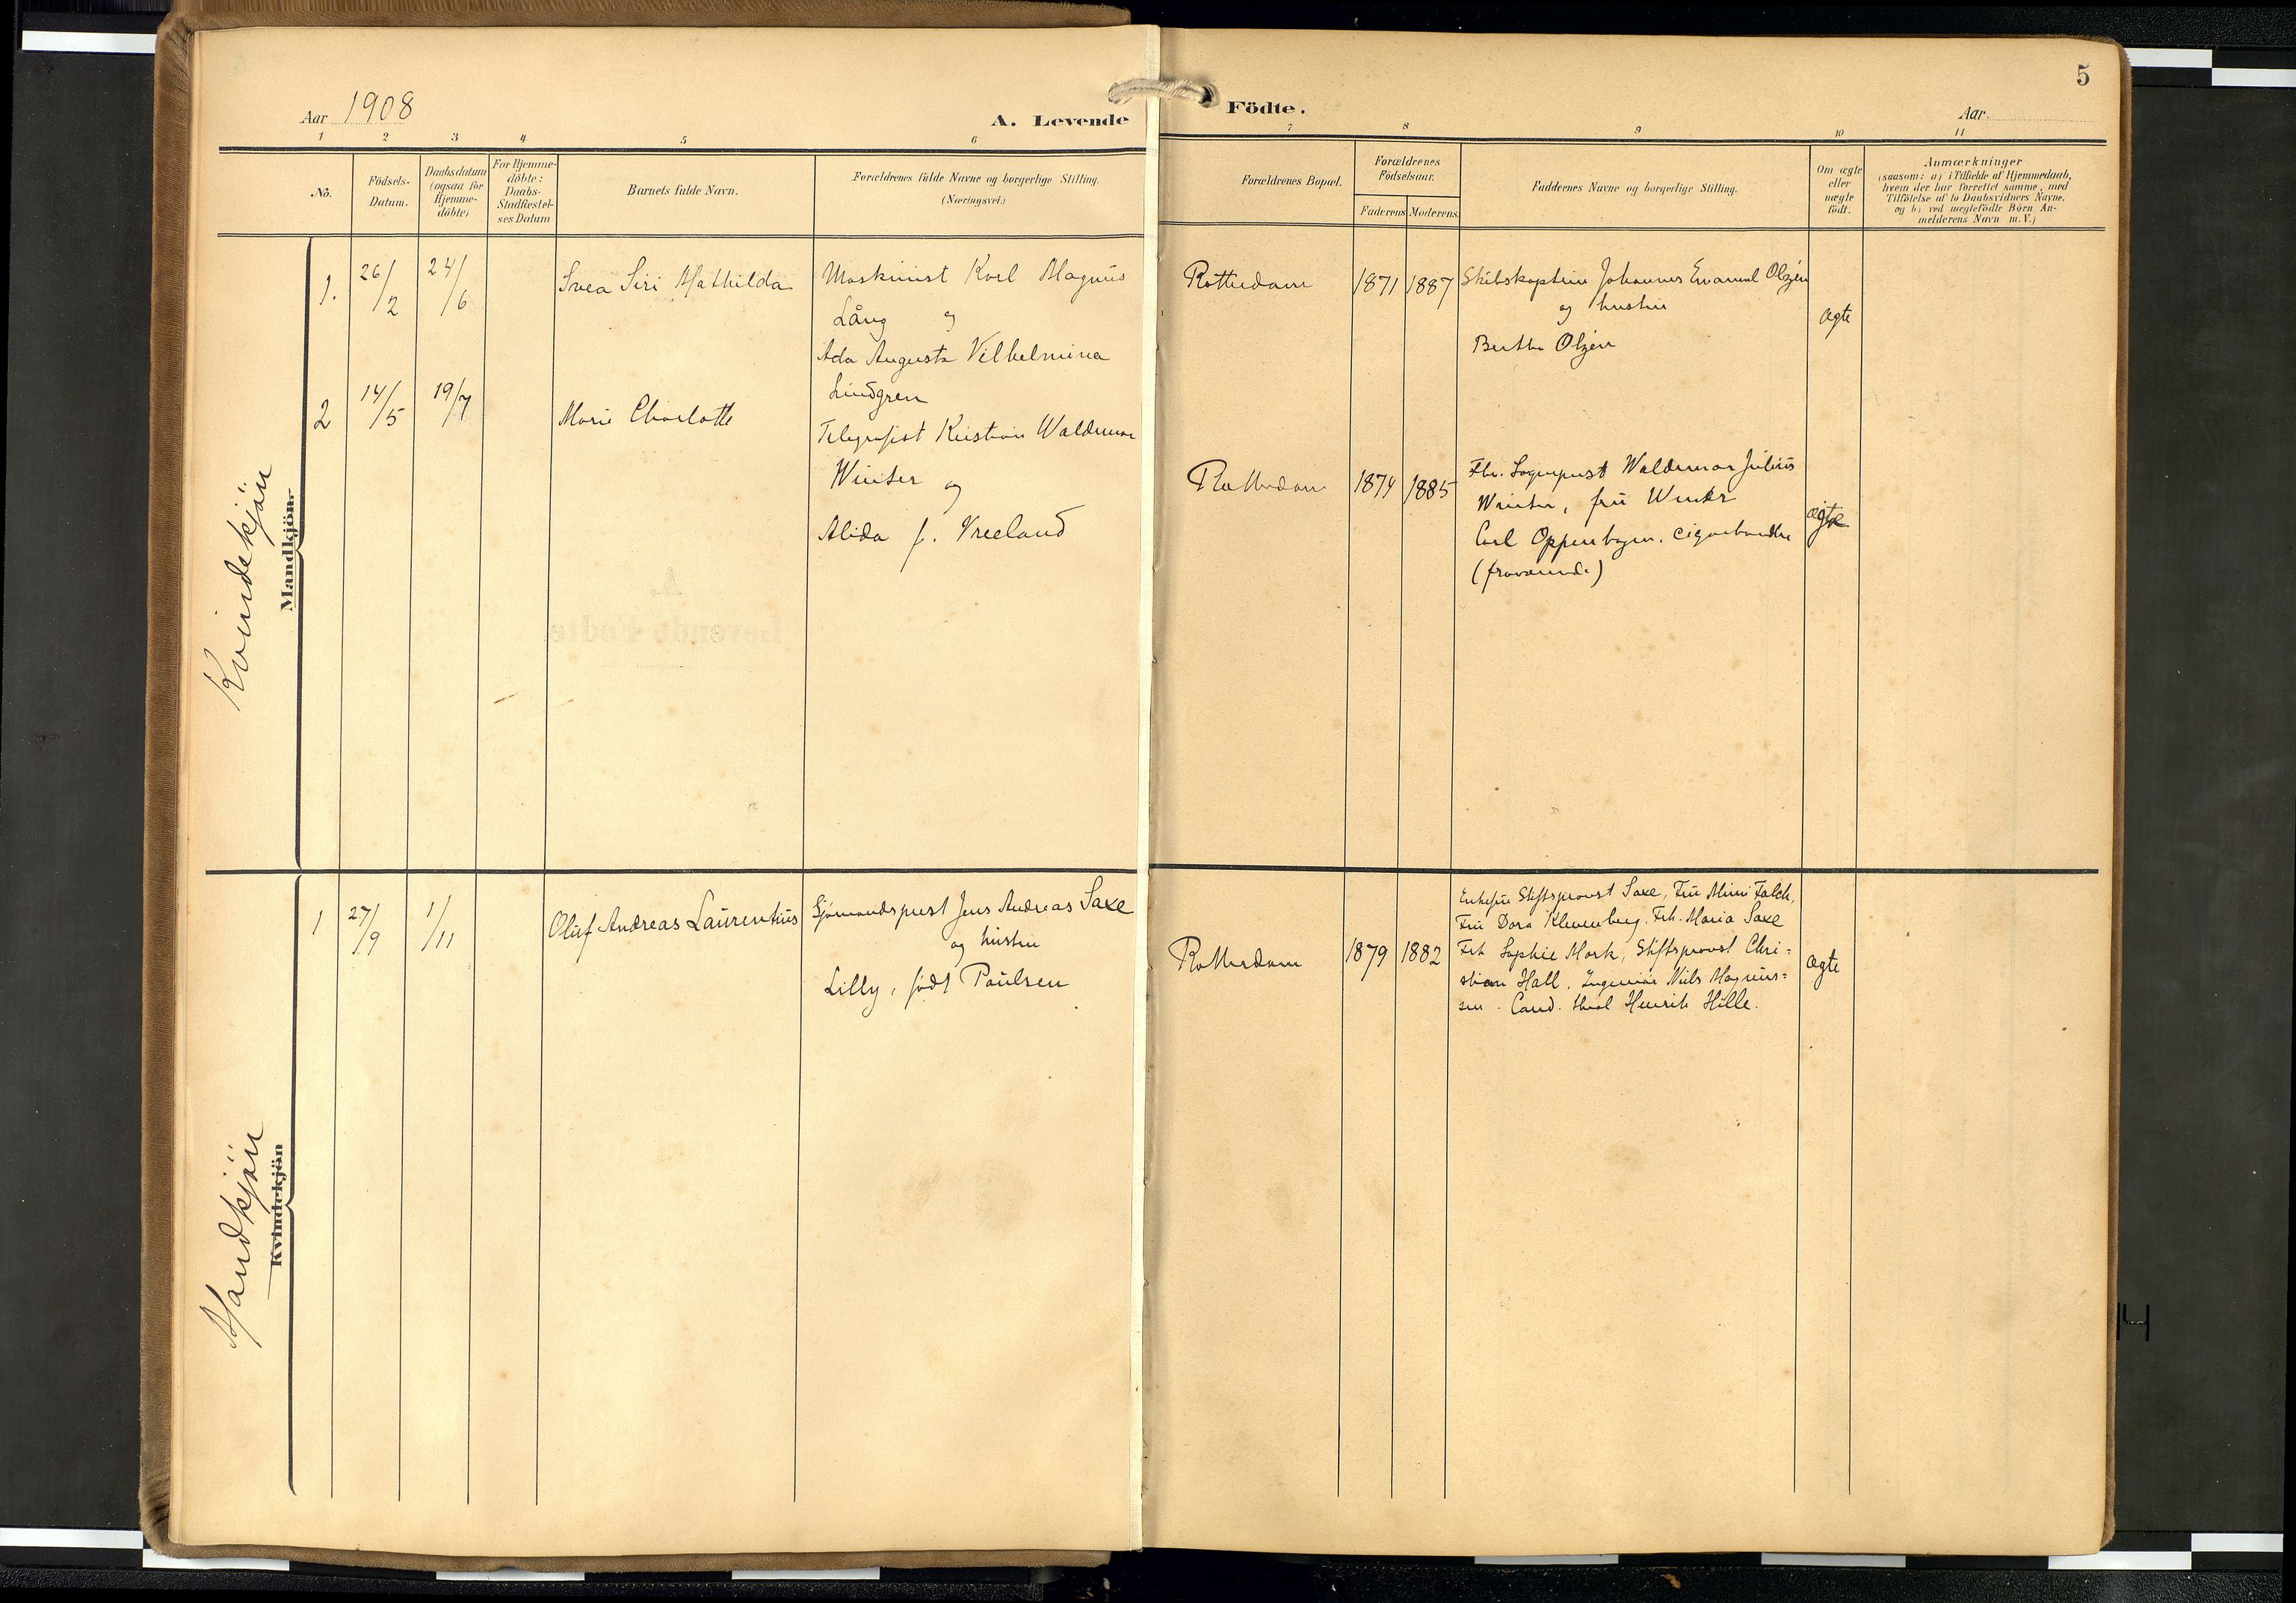 5
Aar 1908
A. Levende Födte.
Aar.
1 2 3 4 5 6 7 8 9 10 11
No.
Födsels-
Datum.
Daabsdatum
(ogsaa for
Hjemme-
döbte)
For Hjemme-
döbte:
Daabs-
Stadfæstel-
ses Datum
Barnets fulde Navn.
Forældrenes fulde Navne og borgerlige Stilling.
(Næringsvei.)
Forældrenes Bopæl.
Forældrenes
Födselsaar.
Faderens Moderens.
Faddernes Navne og borgerlige Stilling.
Om ægte
eller
uægte
födt.
Anmærkninger
(saasom: a) i Tilfælde af Hjemmedaab,
hvem der har forrettet samme, med
Tilföielse af to Daabsvidners Navne.
og b) ved uægtefödte Börn An-
melderens Navn m.V.)
Kvindekjön
Mandkjön.
1. 26/2 24/6 Svea Siri Mathilda
Maskinist Karl Magnus
Lång og
Ada Augusta Vilhelmina
Lindgren
Rotterdam 1871 1887
Skibskaptein Johannes Emanuel Olzén
og hustru
Bertha Olzén
ægte
2 14/5 19/7 Marie Charlotte
Telegrafist Kristian Waldemar
Winter og
Alida f. Vreeland
Rotterdam 1874 1885
Fhv. Sogneprest Waldemar Julius
Winter, fru Winter
Carl Oppenhagen. cigarhandler
(fraværende)
ægte
Mandkjön
Kvindekjön
1 27/9 1/11 Oluf Andreas Laurentius
Sjømandsprest Jens Andreas Saxe
og hustru
Lilly, født Paulsen
Rotterdam 1879 1882
Enkefru Stiftsprovst Saxe, Fru Mimi Falch,
Fru Dora Klevenberg. Frk. Maria Saxe
Frk Sophie Mork, Stiftsprovst Chri=
stian Hall, Ingeniør Niels Magnus=
sen. Cand. theol Henrik Hille.
ægte